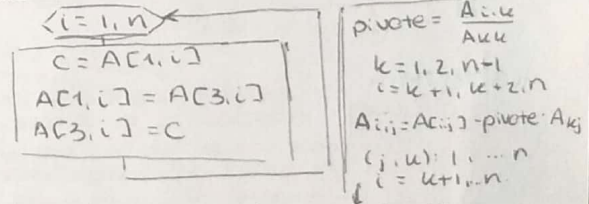 i = 1, n
C = A[1, i]
A[1, i] = A[3, i]
A[3, i] = C
pivote = Ai,k / Akk
k = 1, 2, n-1
i = k+1, k+2, n
Ai,j = A[i,j] - pivote · Akj
(j, k): 1, ... n
i = k+1, ... n